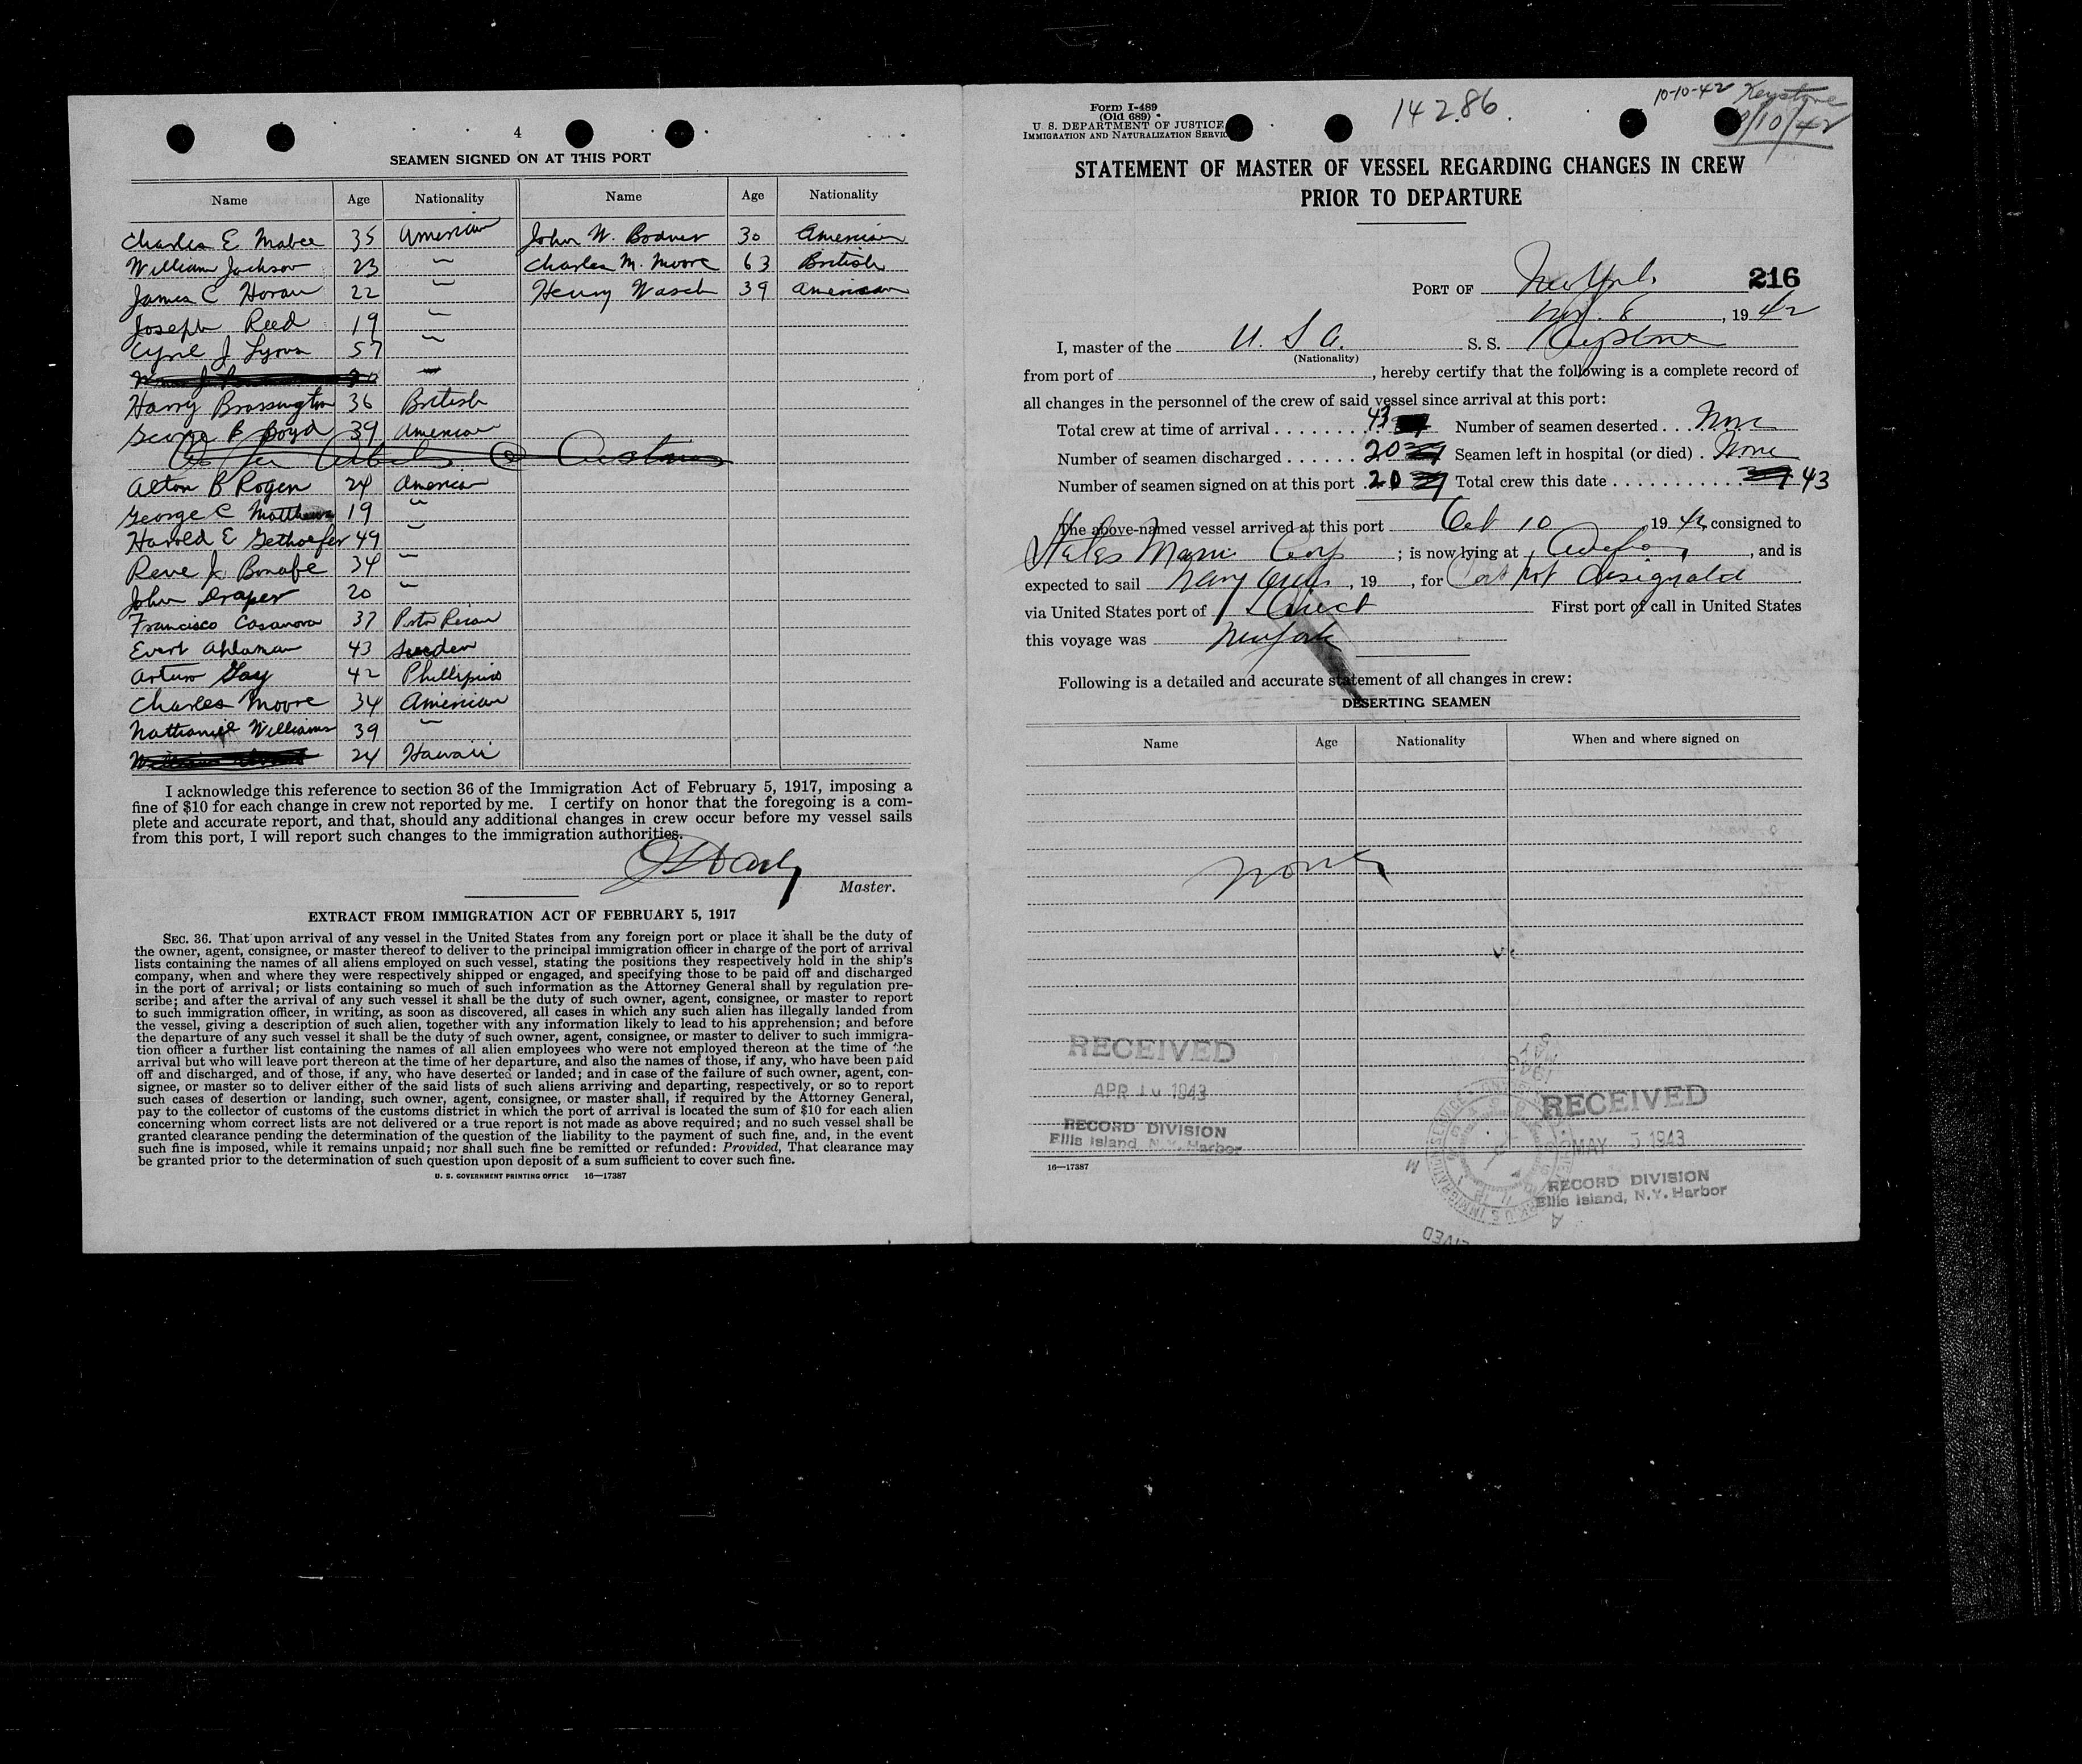 4
SEAMEN SIGNED ON AT THIS PORT
Name Age Nationality Name Age Nationality
Charles E. Mabee 35 American John W. 30 American
William Jackson 23 " Charles M. Moore 63 British
James C Horan 22 " Henry Wasch 39 American
Joseph Reed 19 "
Cyril J Lyons 57 "
Harry Brassington 36 British
George B Boyd 39 American
Alton B Rogen 24 American
George C Matthews 19 "
Harold E Gethoefer 49 "
Rene J. Bonafe 34 "
John Draper 20 "
Francisco Casanova 37 Porto Rican
Evert Ahlaman 43 Sweden
Arturo Gay 42 Phillipino
Charles Moore 34 American
Nathaniel Williams 39 "
24 Hawaii
I acknowledge this reference to section 36 of the Immigration Act of February 5, 1917, imposing a
fine of $10 for each change in crew not reported by me. I certify on honor that the foregoing is a com-
plete and accurate report, and that, should any additional changes in crew occur before my vessel sails
from this port, I will report such changes to the immigration authorities.
Master.
EXTRACT FROM IMMIGRATION ACT OF FEBRUARY 5, 1917
SEC. 36. That upon arrival of any vessel in the United States from any foreign port or place it shall be the duty of
the owner, agent, consignee, or master thereof to deliver to the principal immigration officer in charge of the port of arrival
lists containing the names of all aliens employed on such vessel, stating the positions they respectively hold in the ship's
company, when and where they were respectively shipped or engaged, and specifying those to be paid off and discharged
in the port of arrival; or lists containing so much of such information as the Attorney General shall by regulation pre-
scribe; and after the arrival of any such vessel it shall be the duty of such owner, agent, consignee, or master to report
to such immigration officer, in writing, as soon as discovered, all cases in which any such alien has illegally landed from
the vessel, giving a description of such alien, together with any information likely to lead to his apprehension; and before
the departure of any such vessel it shall be the duty of such owner, agent, consignee, or master to deliver to such immigra-
tion officer a further list containing the names of all alien employees who were not employed thereon at the time of the
arrival but who will leave port thereon at the time of her departure, and also the names of those, if any, who have been paid
off and discharged, and of those, if any, who have deserted or landed; and in case of the failure of such owner, agent, con-
signee, or master so to deliver either of the said lists of such aliens arriving and departing, respectively, or so to report
such cases of desertion or landing, such owner, agent, consignee, or master shall, if required by the Attorney General,
pay to the collector of customs of the customs district in which the port of arrival is located the sum of $10 for each alien
concerning whom correct lists are not delivered or a true report is not made as above required; and no such vessel shall be
granted clearance pending the determination of the question of the liability to the payment of such fine, and, in the event
such fine is imposed, while it remains unpaid; nor shall such fine be remitted or refunded: Provided, That clearance may
be granted prior to the determination of such question upon deposit of a sum sufficient to cover such fine.
U. S. GOVERNMENT PRINTING OFFICE 16—17387
Form I-489
(Old 689)
U. S. DEPARTMENT OF JUSTICE
IMMIGRATION AND NATURALIZATION SERVICE
14286.
10-10-42 Keystone
10/10/42
STATEMENT OF MASTER OF VESSEL REGARDING CHANGES IN CREW
PRIOR TO DEPARTURE
216
PORT OF New York
Nov. 8, 1942
I, master of the U. S. A. S. S. Keystone
(Nationality)
from port of , hereby certify that the following is a complete record of
all changes in the personnel of the crew of said vessel since arrival at this port:
Total crew at time of arrival 43 Number of seamen deserted None
Number of seamen discharged 20 Seamen left in hospital (or died) None
Number of seamen signed on at this port 20 Total crew this date 43
The above-named vessel arrived at this port Oct 10 1942, consigned to
States Marine Corp ; is now lying at , and is
expected to sail Navy Orders, 19 , for Port Not Designated
via United States port of Direct First port of call in United States
this voyage was New York
Following is a detailed and accurate statement of all changes in crew:
DESERTING SEAMEN
Name Age Nationality When and where signed on
None
RECEIVED
APR 10 1943
RECORD DIVISION
Ellis Island, N.Y. Harbor
RECEIVED
MAY 5 1943
RECORD DIVISION
Ellis Island, N.Y. Harbor
16—17387